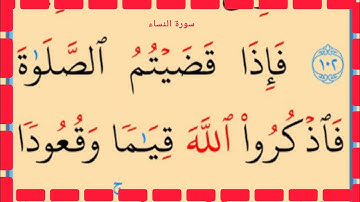 سورة النساء
١٠٢ فَإِذَا قَضَيْتُمُ ٱلصَّلَوٰةَ
فَٱذْكُرُوا۟ ٱللَّهَ قِيَـٰمًا وَقُعُودًا